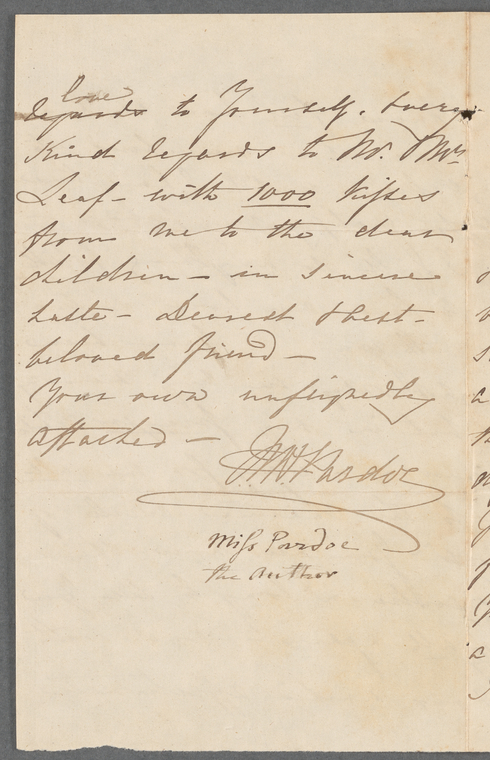 love
regards to Yourself. & very
kind regards to Mr. & Mrs.
Leaf - with 1000 kisses
from me to the dear
children - in sincere
haste - Dearest & best-
beloved friend -
Your own unfeignedly
attached -
Pardoe
Miss Pardoe
the Author